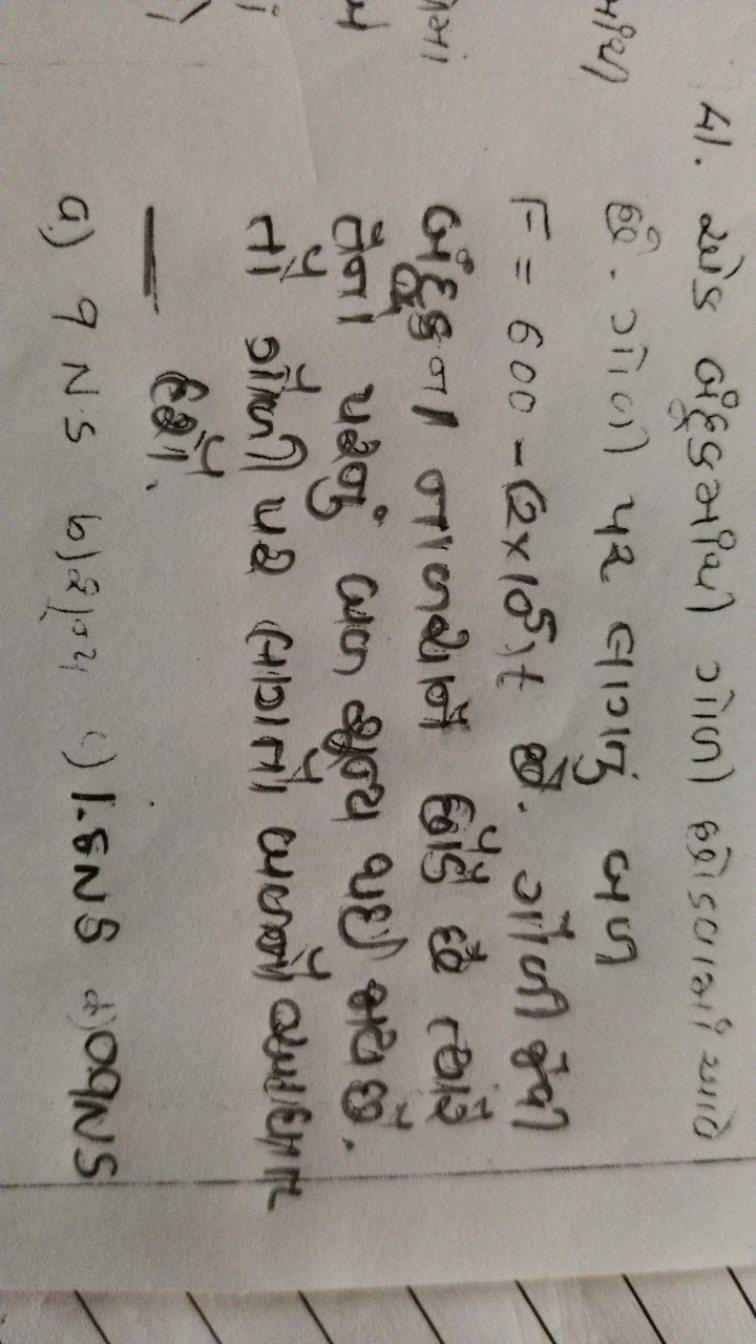 41. એક બંદુકમાંથી ગોળી છોડવામાં આવે
છે. ગોળી પર લાગતું બળ
F = 600 - 2x10⁵t છે. ગોળી જેવી
બંદુકના નાળચાને છોડે છે ત્યારે
તેના પરનું બળ શૂન્ય થઈ જાય છે.
તો ગોળી પર લાગતો બળનો આઘાત
___ હશે.
a) 9 NS b) શૂન્ય c) 1.8NS d) 0.9NS